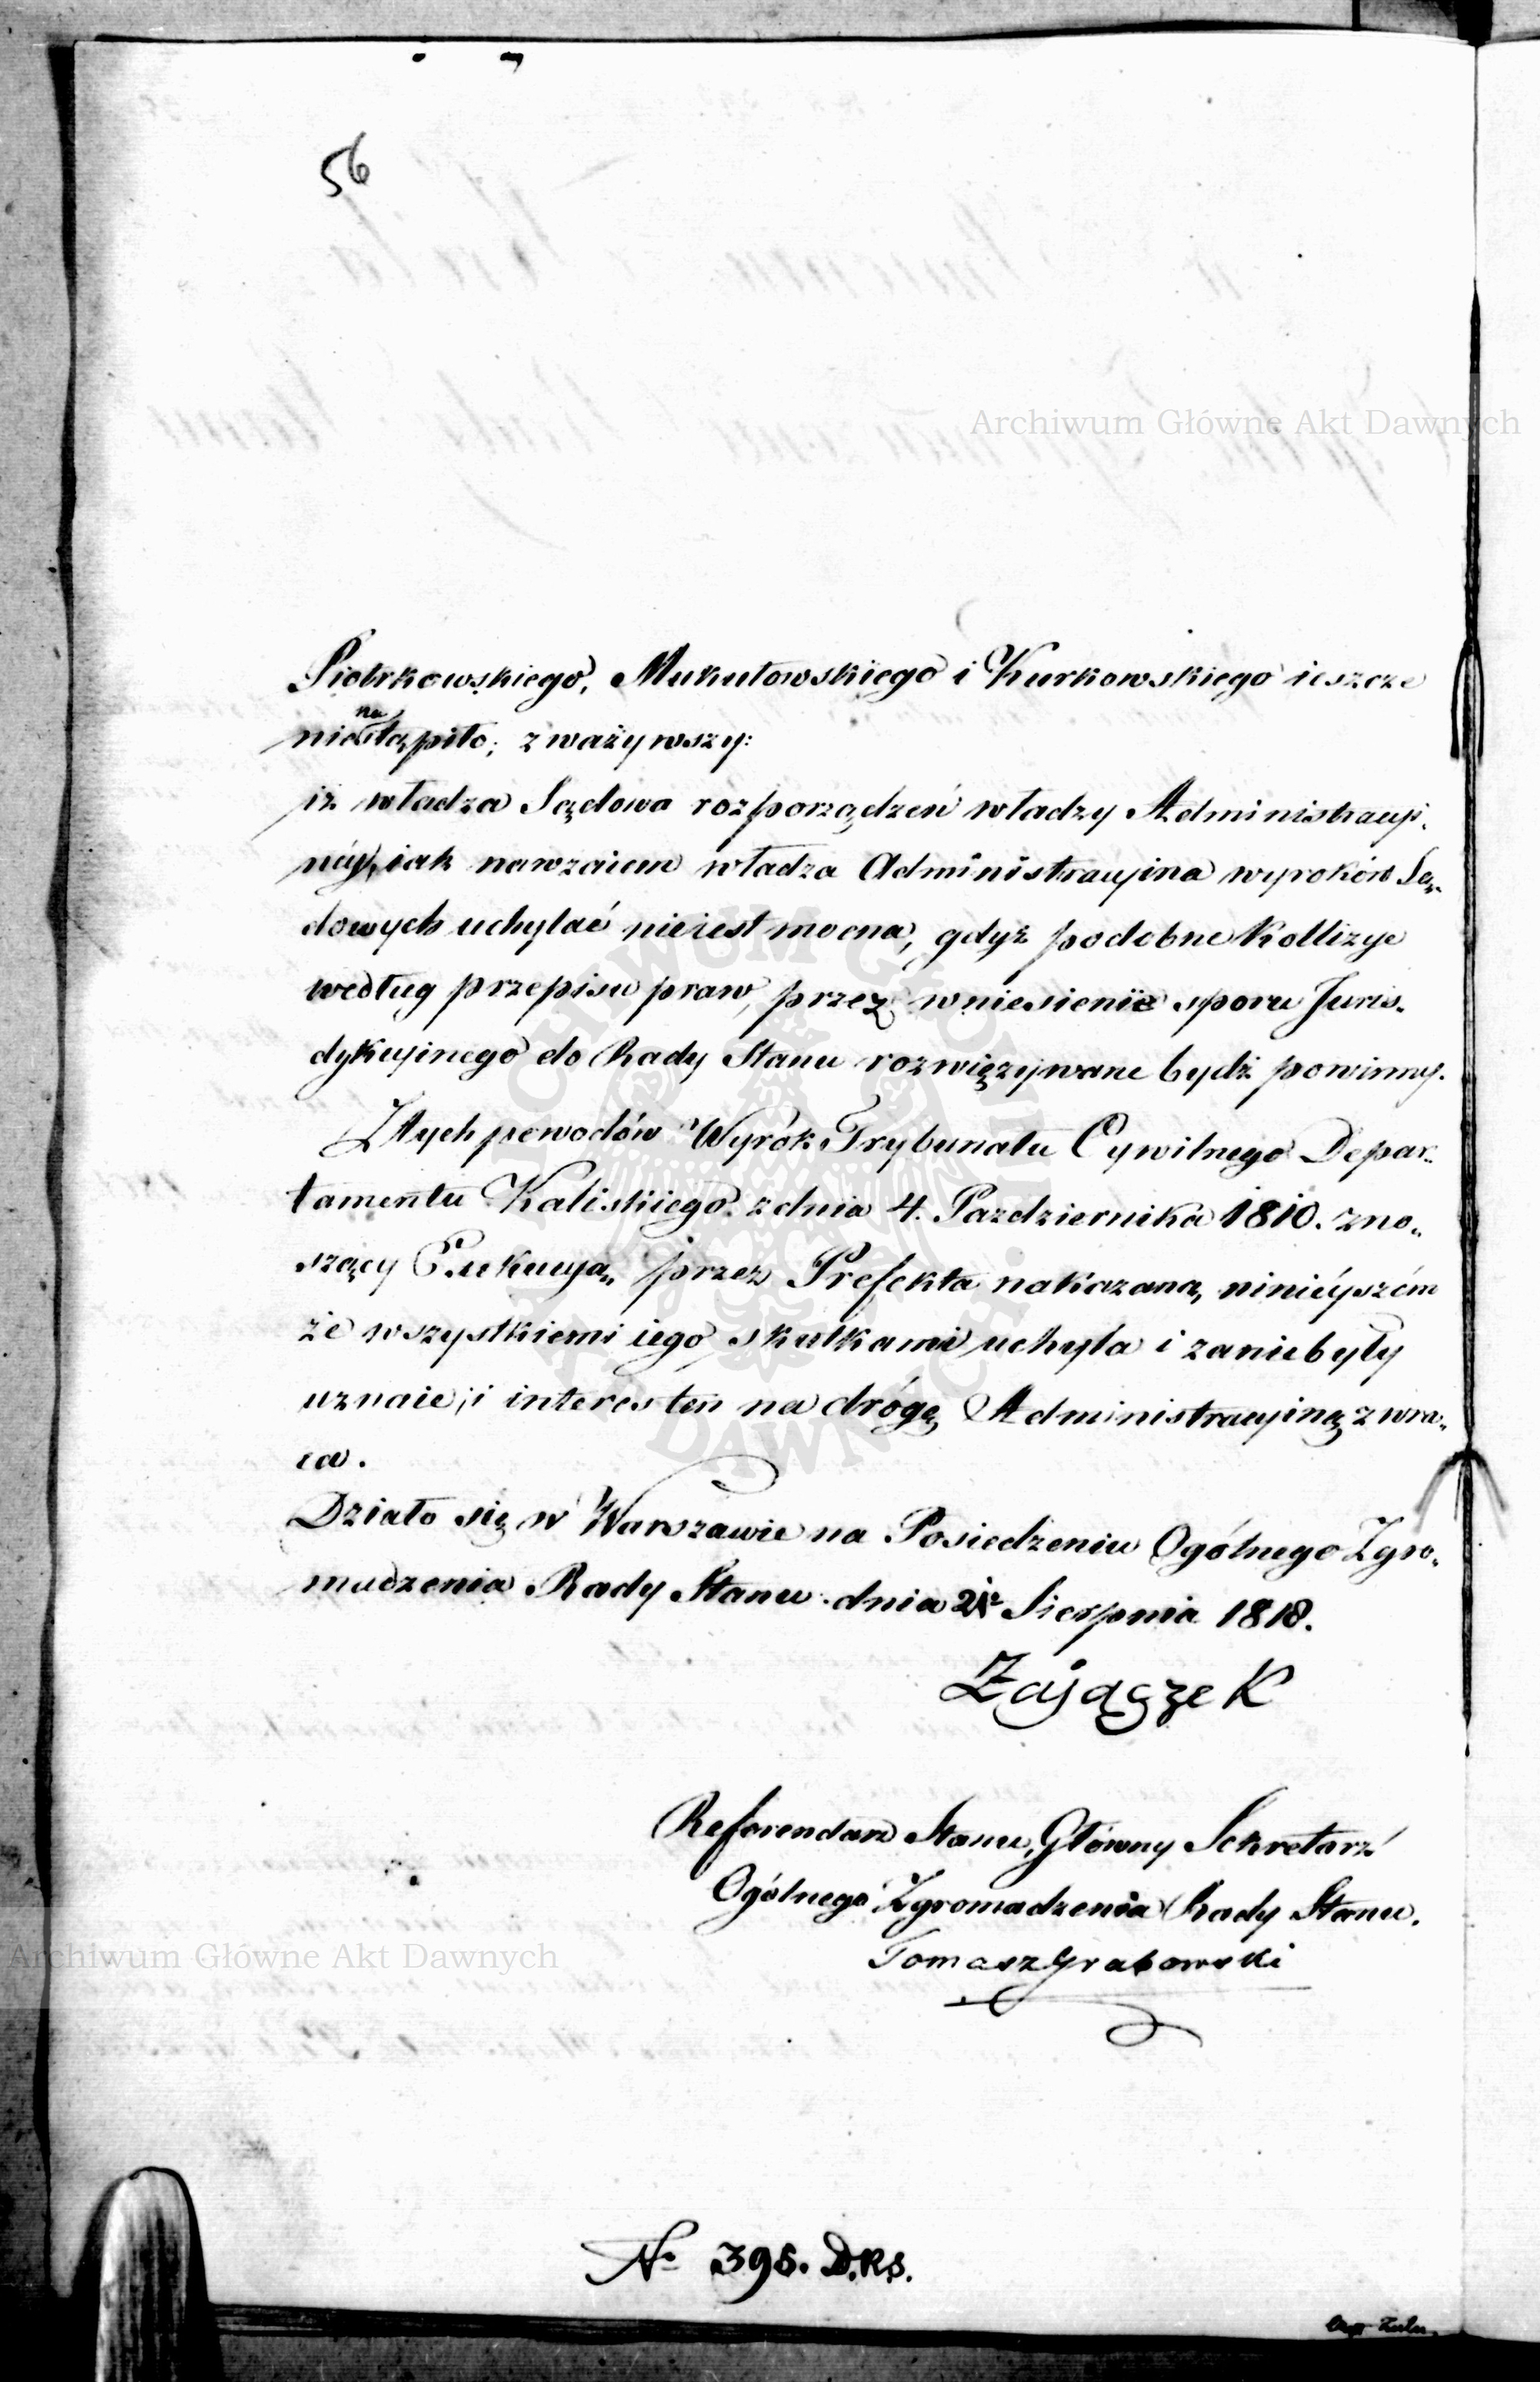 56
Archiwum Główne Akt Dawnych
Piotrkowskiego, Mukułowskiego i Kurkowskiego ieszcze
nienastąpiło; zważywszy:
iż władza Sądowa rozporządzeń władzy Administracyi-
néy, iak nawzaiem władza Administracyina wyroków Są-
dowych uchylać nieiest mocna, gdyż podobne Kollizye
według przepisu praw, przez wniesienie sporu Juris-
dykcyinego do Rady Stanu rozwięzywane bydź powinny.
Z tych powodów Wyrok Trybunału Cywilnego Depar-
tamentu Kaliskiego z dnia 4. Pazdziernika 1810. zno-
szący Exekucyą, przez Prefekta nakazaną, ninieyszém
ze wszystkiemi iego skutkami uchyla i zaniebyły
uznaie; i interes ten na drógę Administracyiną zwra-
ca.
Działo się w Warszawie na Posiedzeniu Ogólnego Zgro-
madzenia Rady Stanu dnia Sierpnia 1818.
Zajączek
Referendarz Stanu, Główny Sekretarz
Ogólnego Zgromadzenia Rady Stanu.
Tomasz Grabowski
Archiwum Główne Akt Dawnych
No 398. D.R.S.
ARCHIWUM GŁÓWNE AKT DAWNYCH